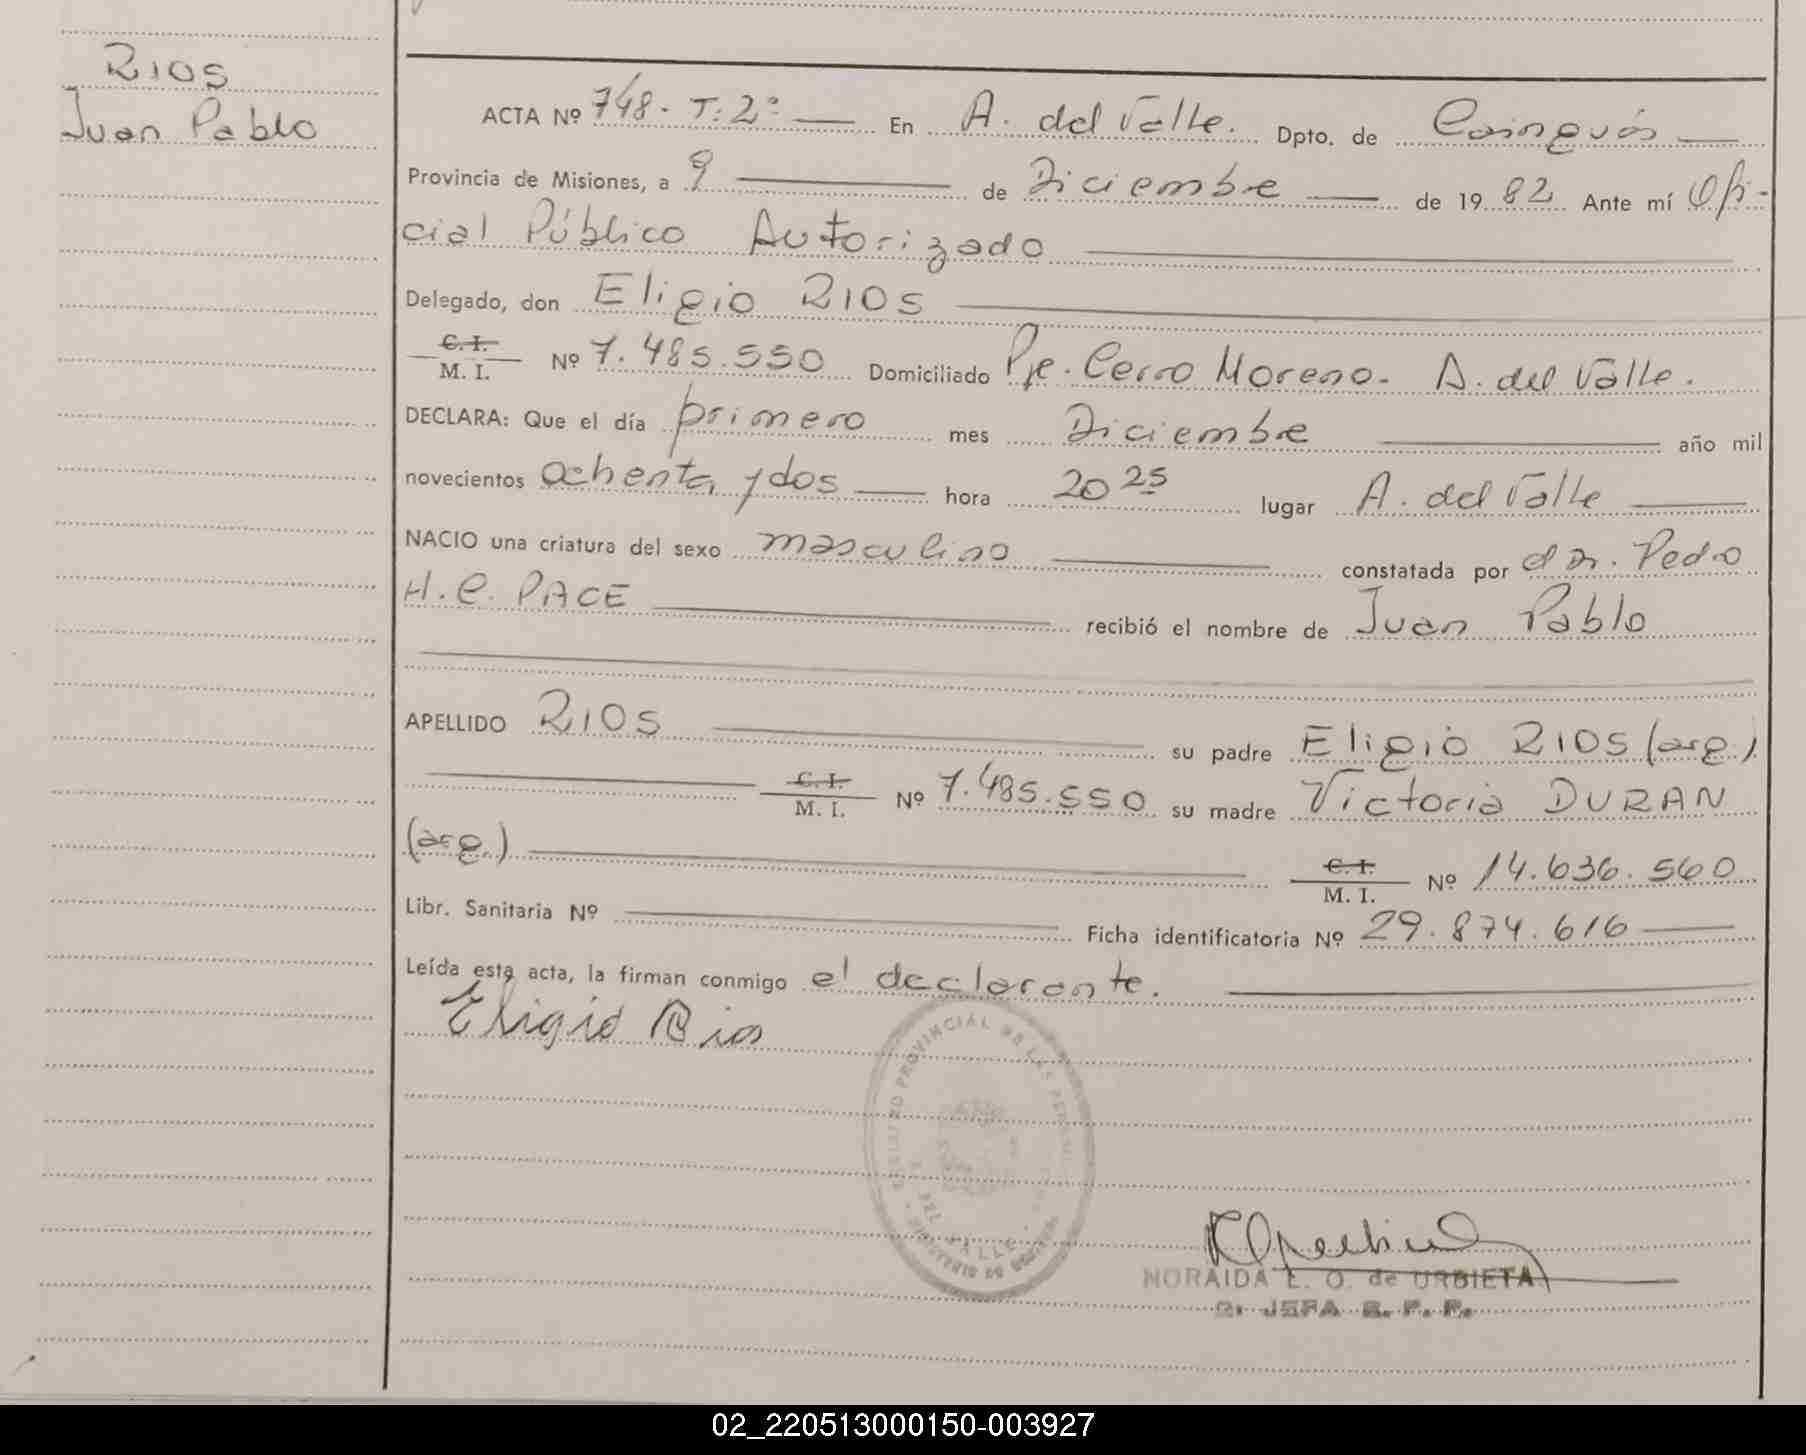 RIOS
Juan Pablo
ACTA Nº 748 - T: 2º — En A. del Valle. Dpto. de Cainguás —
Provincia de Misiones, a 9 — de Diciembre — de 1982 Ante mí Ofi-
cial Público Autorizado —
Delegado, don Eligio RIOS —
C. I. / M. I. Nº 7.485.550 Domiciliado Pje. Cerro Moreno - A. del Valle.
DECLARA: Que el día primero mes Diciembre — año mil
novecientos ochenta y dos — hora 20 25 lugar A. del Valle —
NACIO una criatura del sexo masculino — constatada por el Dr. Pedro
H. C. PACE — recibió el nombre de Juan Pablo
APELLIDO RIOS — su padre Eligio RIOS (arg.)
— C. I. / M. I. Nº 7.485.550 su madre Victoria DURAN
(arg.) — C. I. / M. I. Nº 14.636.560
Libr. Sanitaria Nº — Ficha identificatoria Nº 29.874.616 —
Leída esta acta, la firman conmigo el declarante. —
Eligio Rios
REGISTRO PROVINCIAL DE LAS PERSONAS
DEL VALLE
MINISTERIO DE GOBIERNO
NORAIDA E. O. de URBIETA
JEFA R. P. P.
02_220513000150-003927